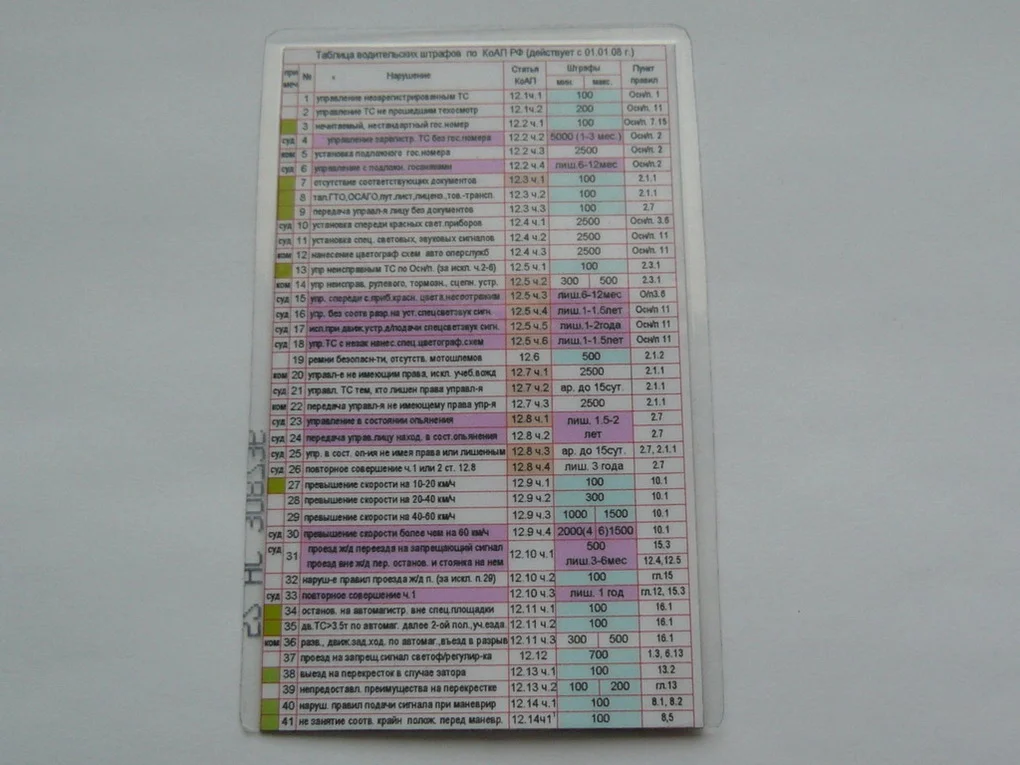 Таблица водительских штрафов по КоАП РФ (действует с 01.01.08 г.)
при меч № Нарушение Статья КоАП Штрафы мин. макс. Пункт правил
1 управление незарегистрированным ТС 12.1ч.1 100 Осн/п. 1
2 управление ТС не прошедшим техосмотр 12.1ч.2 200 Осн/п. 11
3 нечитаемый, нестандартный гос.номер 12.2 ч.1 100 Осн/п. 7.15
суд 4 управление зарегистр. ТС без гос.номера 12.2 ч.2 5000 (1-3 мес.) Осн/п. 2
ком 5 установка подложного гос.номера 12.2 ч.3 2500 Осн/п. 2
суд 6 управление с подложн. госзнаками 12.2 ч.4 лиш.6-12мес Осн/п.2
7 отсутствие соответствующих документов 12.3 ч.1 100 2.1.1
8 тал.ГТО,ОСАГО,пут.лист,лиценз.,тов.-трансп. 12.3 ч.2 100 2.1.1
9 передача управл-я лицу без документов 12.3 ч.3 100 2.7
суд 10 установка спереди красных свет.приборов 12.4 ч.1 2500 Осн/п. 3.6
суд 11 установка спец. световых, звуковых сигналов 12.4 ч.2 2500 Осн/п. 11
ком 12 нанесение цветограф схем авто оперслужб 12.4 ч.3 2500 Осн/п. 11
13 упр неисправным ТС по Осн/п. (за искл. ч.2-6) 12.5 ч.1 100 2.3.1
ком 14 упр неисправ. рулевого, тормозн., сцепн. устр. 12.5 ч.2 300 500 2.3.1
суд 15 упр. спереди с.приб.красн. цвета,несоотрежим 12.5 ч.3 лиш.6-12мес О/п3.6
суд 16 упр. без соотв разр.на уст.спецсветзвук сигн. 12.5 ч.4 лиш.1-1.5лет Осн/п 11
суд 17 исп.при движ.устр.д/подачи спецсветзвук сигн. 12.5 ч.5 лиш.1-2года Осн/п 11
суд 18 упр.ТС с незак нанес.спец.цветограф.схем 12.5 ч.6 лиш.1-1.5лет Осн/п 11
19 ремни безопасн-ти, отсутств. мотошлемов 12.6 500 2.1.2
ком 20 управл-е не имеющим права, искл. учеб.вожд 12.7 ч.1 2500 2.1.1
суд 21 управл. ТС тем, кто лишен права управл-я 12.7 ч.2 ар. до 15сут. 2.1.1
ком 22 передача управл-я не имеющему права упр-я 12.7 ч.3 2500 2.1.1
суд 23 управление в состоянии опьянения 12.8 ч.1 лиш. 1.5-2 лет 2.7
суд 24 передача управ.лицу наход. в сост.опьянения 12.8 ч.2 2.7
суд 25 упр. в сост. оп-ия не имея права или лишенным 12.8 ч.3 ар. до 15сут. 2.7, 2.1.1
суд 26 повторное совершение ч.1 или 2 ст. 12.8 12.8 ч.4 лиш. 3 года 2.7
27 превышение скорости на 10-20 км/ч 12.9 ч.1 100 10.1
28 превышение скорости на 20-40 км/ч 12.9 ч.2 300 10.1
29 превышение скорости на 40-60 км/ч 12.9 ч.3 1000 1500 10.1
суд 30 превышение скорости более чем на 60 км/ч 12.9 ч.4 2000(4 6)1500 10.1
суд 31 проезд ж/д переезда на запрещающий сигнал 12.10 ч.1 500 15.3
проезд вне ж/д пер. останов. и стоянка на нем лиш.3-6мес 12.4,12.5
32 наруш-е правил проезда ж/д п. (за искл. п.29) 12.10 ч.2 100 гл.15
суд 33 повторное совершение ч.1 12.10 ч.3 лиш. 1 год гл.12, 15.3
34 останов. на автомагистр. вне спец.площадки 12.11 ч.1 100 16.1
35 дв.ТС>3.5т по автомаг. далее 2-ой пол.,уч.езда 12.11 ч.2 100 16.1
ком 36 разв., движ.зад.ход. по автомаг.,въезд в разрыв 12.11 ч.3 300 500 16.1
37 проезд на запрещ.сигнал светоф/регулир-ка 12.12 700 1.3, 6.13
38 выезд на перекресток в случае затора 12.13 ч.1 100 13.2
39 непредоставл. преимущества на перекрестке 12.13 ч.2 100 200 гл.13
40 наруш. правил подачи сигнала при маневрир 12.14 ч.1 100 8.1, 8.2
41 не занятие соотв. крайн полож. перед маневр. 12.14ч1 100 8,5